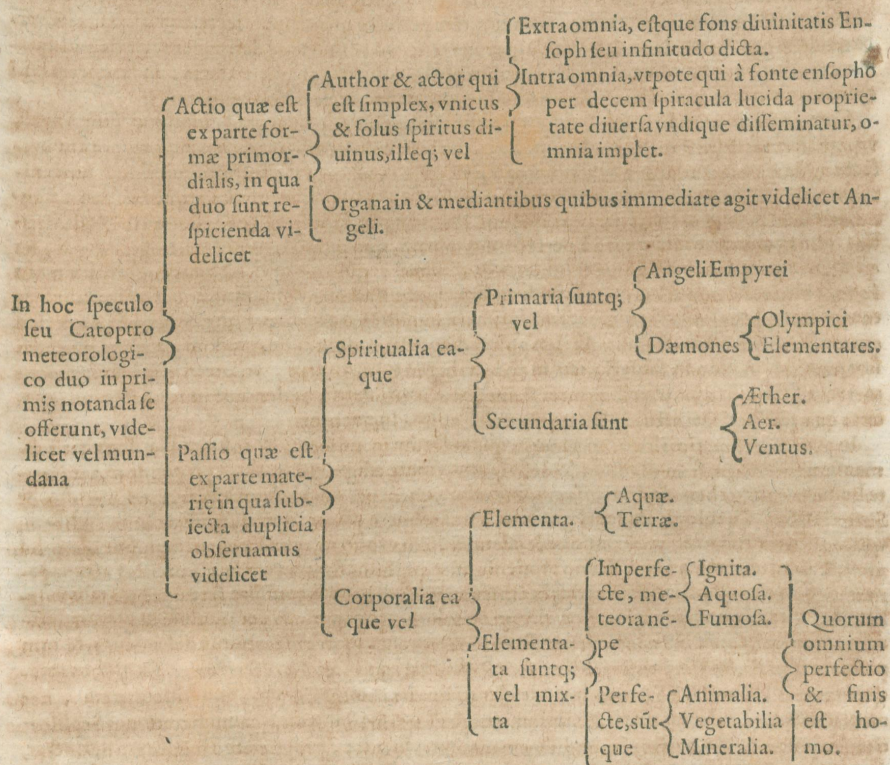 In hoc ſpeculo
ſeu Catoptro
meteorologi-
co duo in pri-
mis notanda ſe
offerunt, vide-
licet vel mun-
dana
Actio quæ eſt
ex parte for-
mæ primor-
dialis, in qua
duo ſunt re-
ſpicienda vi-
delicet
Author & actor qui
eſt ſimplex, vnicus
& ſolus ſpiritus di-
uinus, illeq; vel
Extra omnia, eſtque fons diuinitatis En-
ſoph ſeu infinitudo dicta.
Intra omnia, vtpote qui à fonte enſopho
per decem ſpiracula lucida proprie-
tate diuerſa vndique diſſeminatur, o-
mnia implet.
Organa in & mediantibus quibus immediate agit videlicet An-
geli.
Paſſio quæ eſt
ex parte mate-
rię in qua ſub-
iecta duplicia
obſeruamus
videlicet
Spiritualia ea-
que
Primaria ſuntq;
vel
Angeli Empyrei
Dæmones
Olympici
Elementares.
Secundaria ſunt
Æther.
Aer.
Ventus.
Corporalia ea
que vel
Elementa.
Aquæ.
Terræ.
Elementa-
ta ſuntq;
vel mix-
ta
Imperfe-
cte, me-
teora nē-
pe
Ignita.
Aquoſa.
Fumoſa.
Perfe-
cte, sūt
que
Animalia.
Vegetabilia
Mineralia.
Quorum
omnium
perfectio
& finis
eſt ho-
mo.